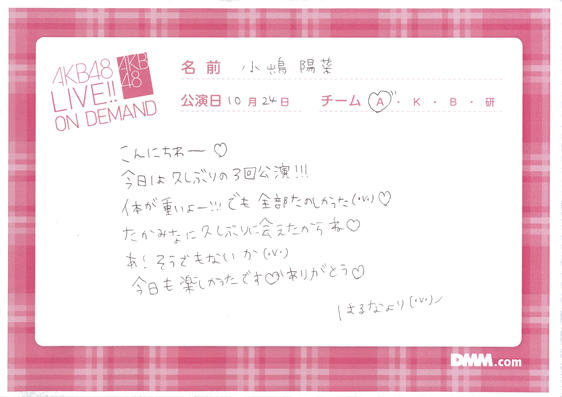 AKB48
LIVE!!
ON DEMAND
AKB
48
名前 小嶋 陽菜
公演日 10月24日 チーム A・K・B・研
こんにちわー♡
今日は久しぶりの3回公演!!!
体が重いよー!!!でも全部たのしかった(・v・)♡
たかみなに久しぶりに会えたからね♡
あ!そうでもないか(・v・)
今日も楽しかったです♡ありがとう♡
はるなより(・v・)ノ
DMM.com